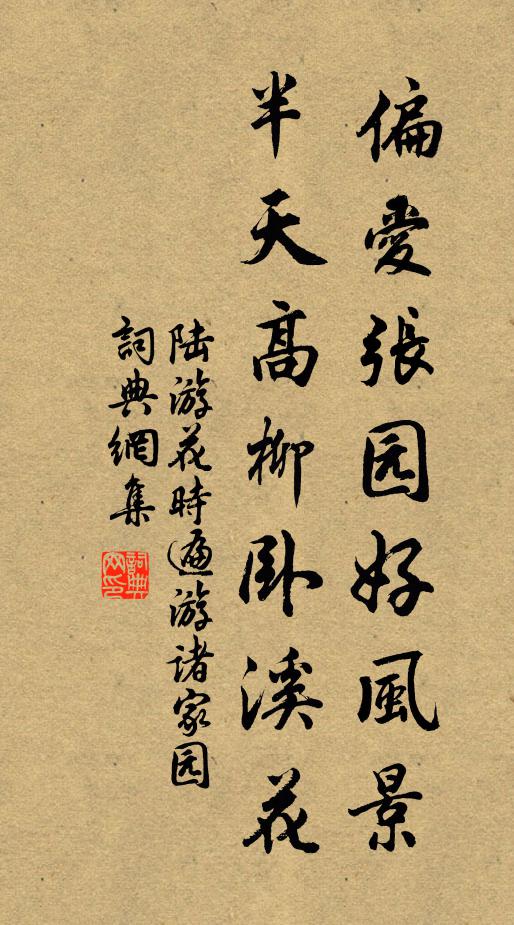 偏愛張园好風景
半天高柳卧溪花
陆游花時遍游诸家园
詞典網集
詞典网印